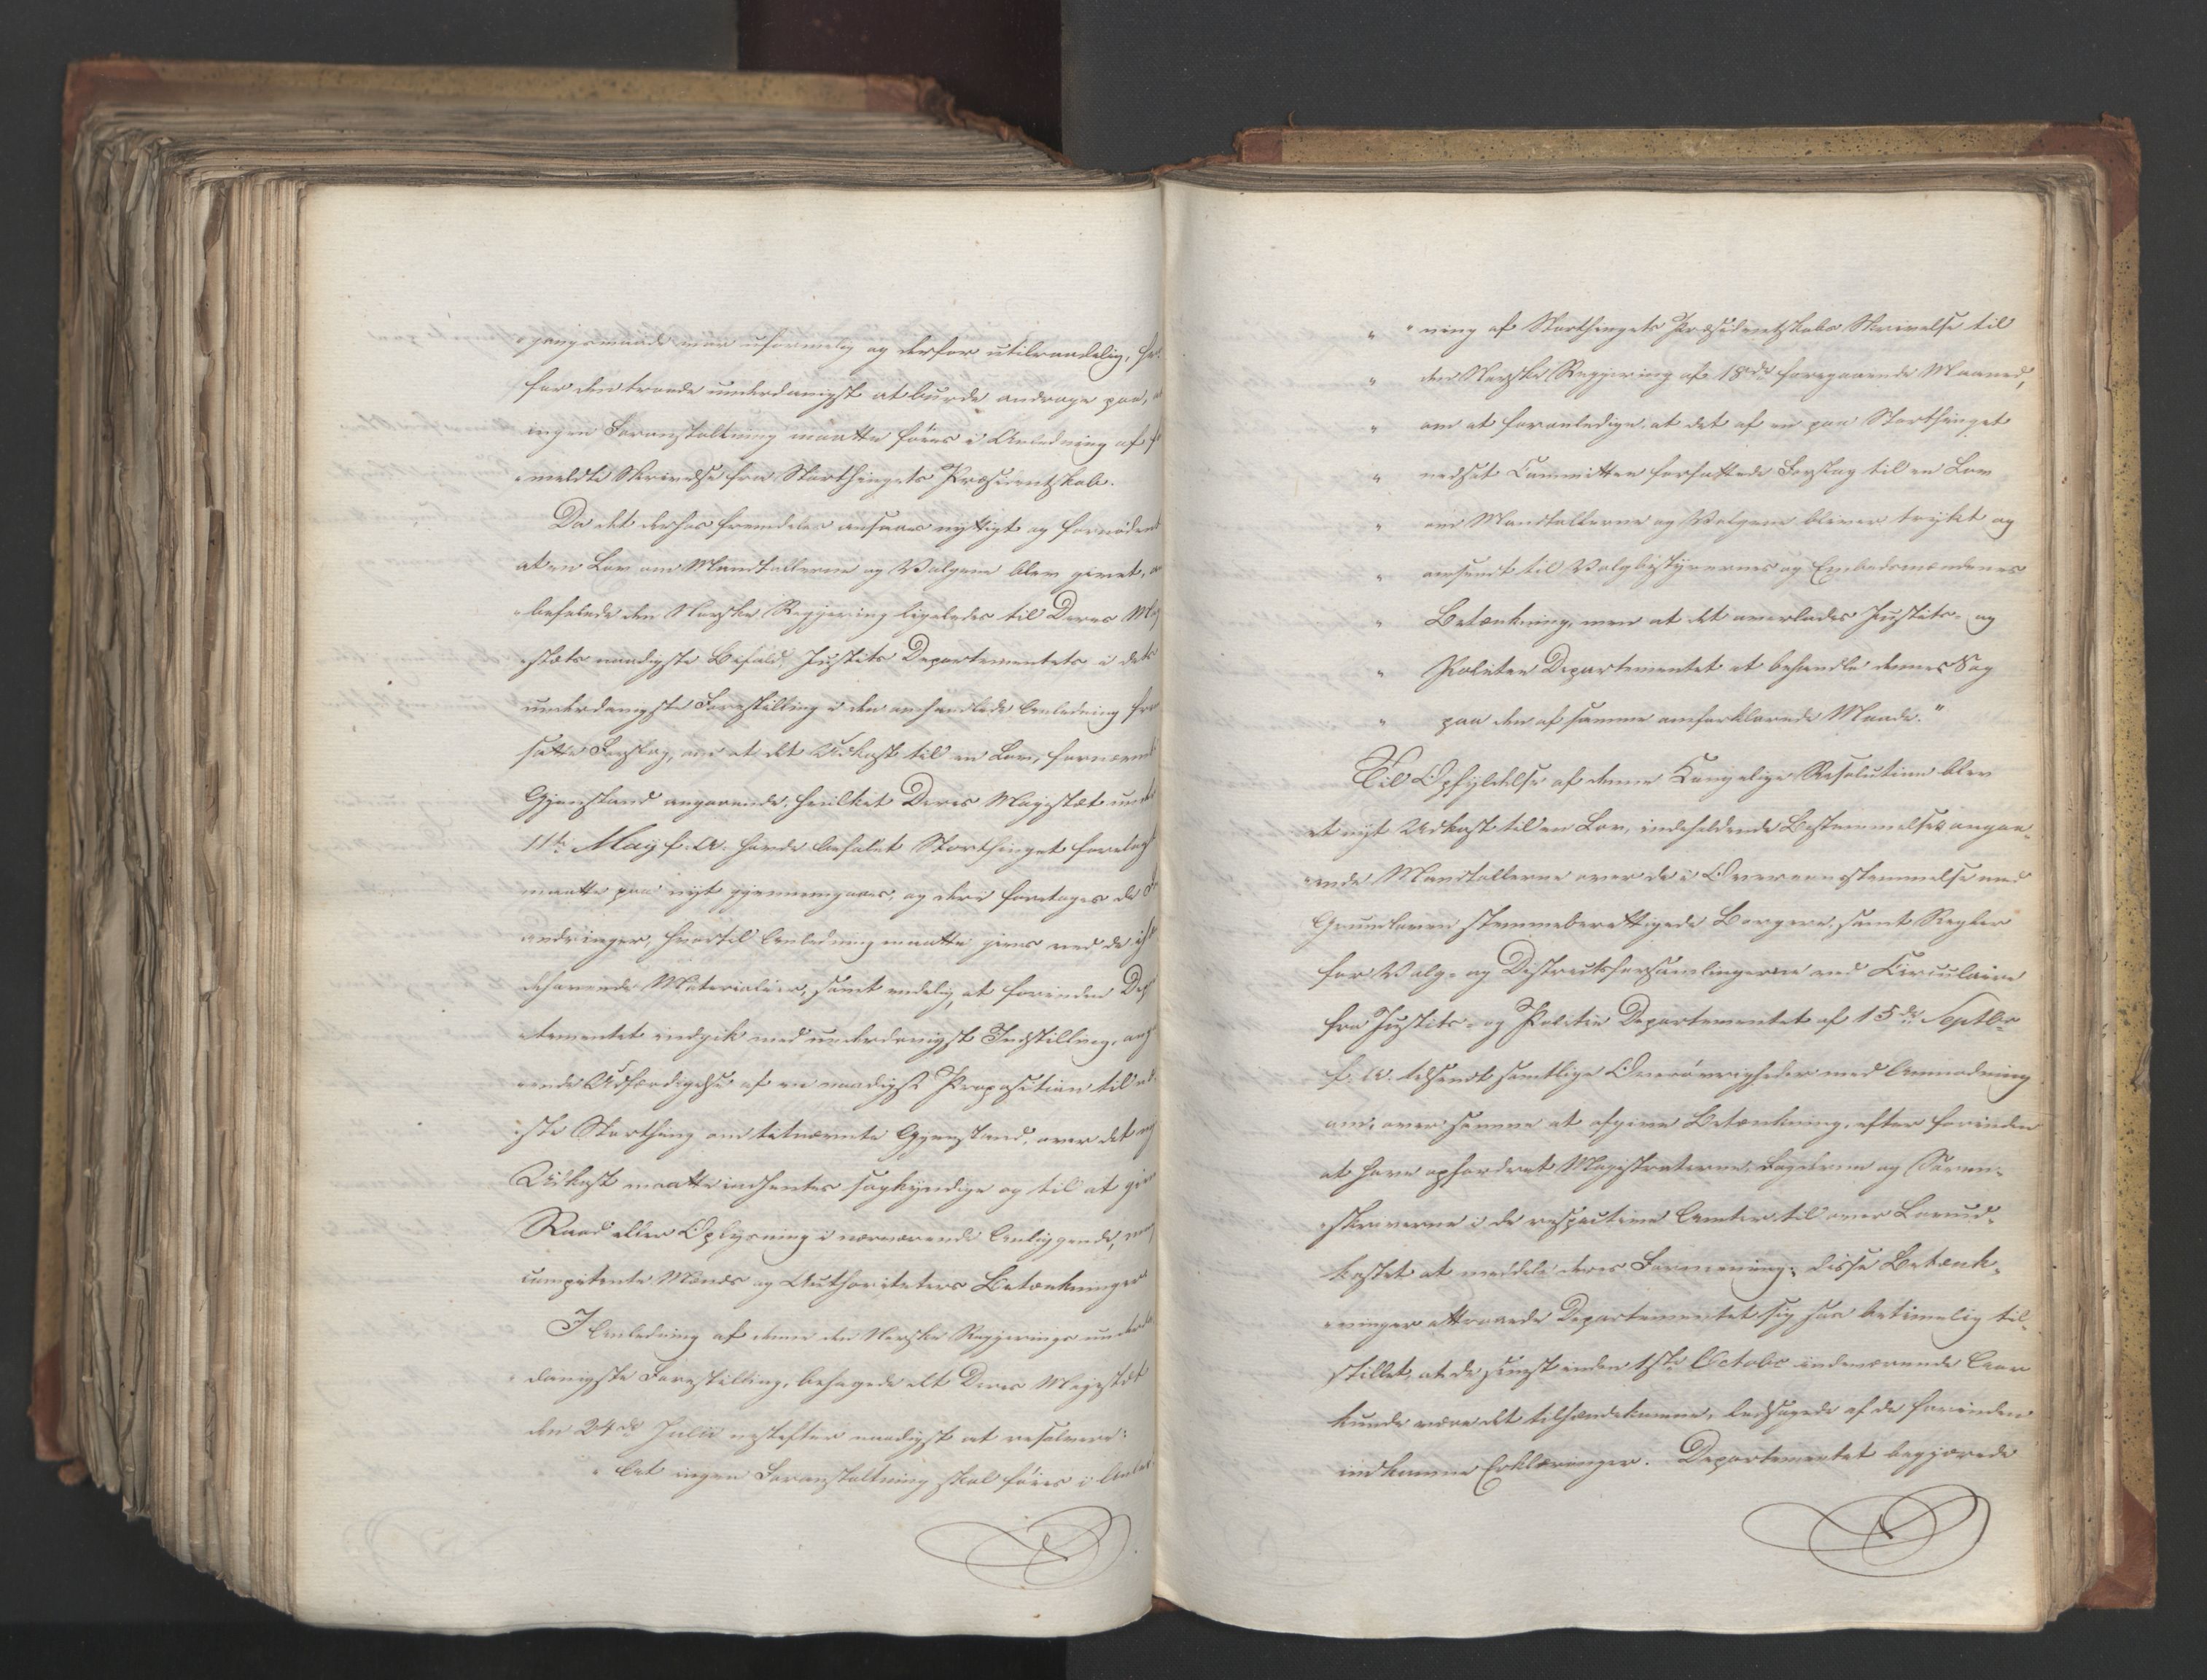 gangsmaade var uformelig og derfor utilraadelig, hvor-
for den troede underdanigst at burde andrage paa, a
ingen Foranstaltning maatte föies i Anledning af f
meldte Skrivelse fra Storthingets Præsidentskab.
Da det derhos fremdeles ansaaes nyttigt og fornödent
at en Lov om Mandtallerne og Valgene blev givet, a
befalede den Norske Regjering ligeledes til Deres Maj
stæts naadigste Bifald, Justits Departementets i dets
underdanigste Forestilling i den omhandlede Anledning frem
satte Forslag, om at det Udkast til en Lov, fornævnte
Gjenstand angaaende, hvilket Deres Majestæt under
11te May f. A. havde befalet Storthinget forelagt
maatte paa nyt gjennemgaaes, og deri foretages de For
andringer, hvortil Anledning maatte gives ved de ihæn
dehavende Materialier, samt endelig, at forinden Depar
tementet indgik med underdanigst Indstilling, anga
ende Udfærdigelse af en naadigst Proposition til næ
ste Storthing om bemeldte Gjenstand, over det ny
Udkast maatte indhentes sagkyndige og til at give
Raad eller Oplysning i nærværende Anliggende, meest
competente Mænds og Authoriteters Betænkninger
I Anledning af denne den Norske Regjerings under
danigste Forestilling, behagede det Deres Majestæt
den 24de Julii næstefter naadigst at resolvere:
" At ingen Foranstaltning skal föies i Anled
" " ning af Storthingets Præsidentskabs Skrivelse til
" den Norske Regjering af 18de foregaaende Maaned,
" om at foranledige, at det af en paa Storthinget
" nedsat Committee forfattede Forslag til en Lov
" om Mandtallerne og Valgene bliver trykt og
" omsendt til Valgbestyrernes og Embedsmændenes
" Betænkning, men at det overlades Justits- og
" Politie Departementet at behandle denne Sag
" paa den af samme omforklarede Maade."
Til Opfyldelse af denne Kongelige Resolution blev
et nyt Udkast til en Lov, indeholdende Bestemmelser angaa-
ende Mandtallerne over de i Overeensstemmelse med
Grundloven stemmeberettigede Borgere, samt Regler
for Valg- og Districtsforsamlingerne ved Circulaire
fra Justits- og Politie Departementet af 15de Septbr
f. A. tilsendt samtlige Overövrigheder med Anmodning
om, over samme at afgive Betænkning, efter forinden
at have opfordret Magistraterne, Fogderne og Soren-
skriverne i de respective Amter til over Lovud-
kastet at meddele deres Formening; disse Betænk-
ninger attraaede Departementet sig saa betimelig til-
stillet, at de sinst inden 1ste Octobr indeværende Aar
kunde være det tilhændekomne, ledsagede af de forinden
indkomne Erklæringer. Departementet begjærede